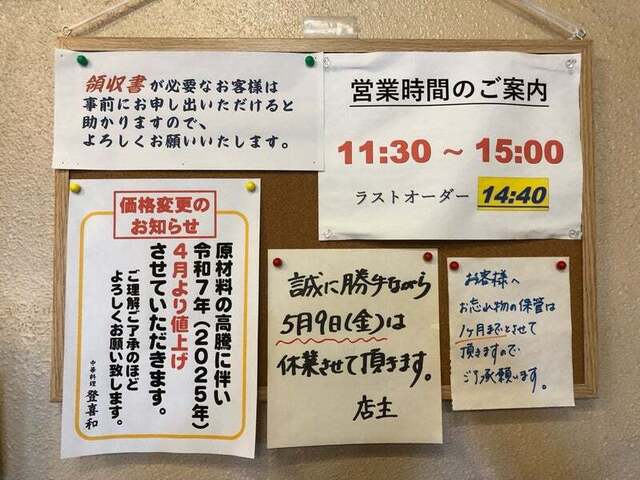 領収書が必要なお客様は
事前にお申し出いただけると
助かりますので、
よろしくお願いいたします。
営業時間のご案内
11:30 ~ 15:00
ラストオーダー 14:40
価格変更の
お知らせ
原材料の高騰に伴い
令和7年(2025年)
4月より値上げ
させていただきます。
ご理解ご了承のほど
よろしくお願い致します。
中華料理 登喜和
誠に勝手ながら
5月9日(金)は
休業させて頂きます。
店主
お客様へ
お忘れ物の保管は
1ヶ月までとさせて
頂きますので
ご了承願います。